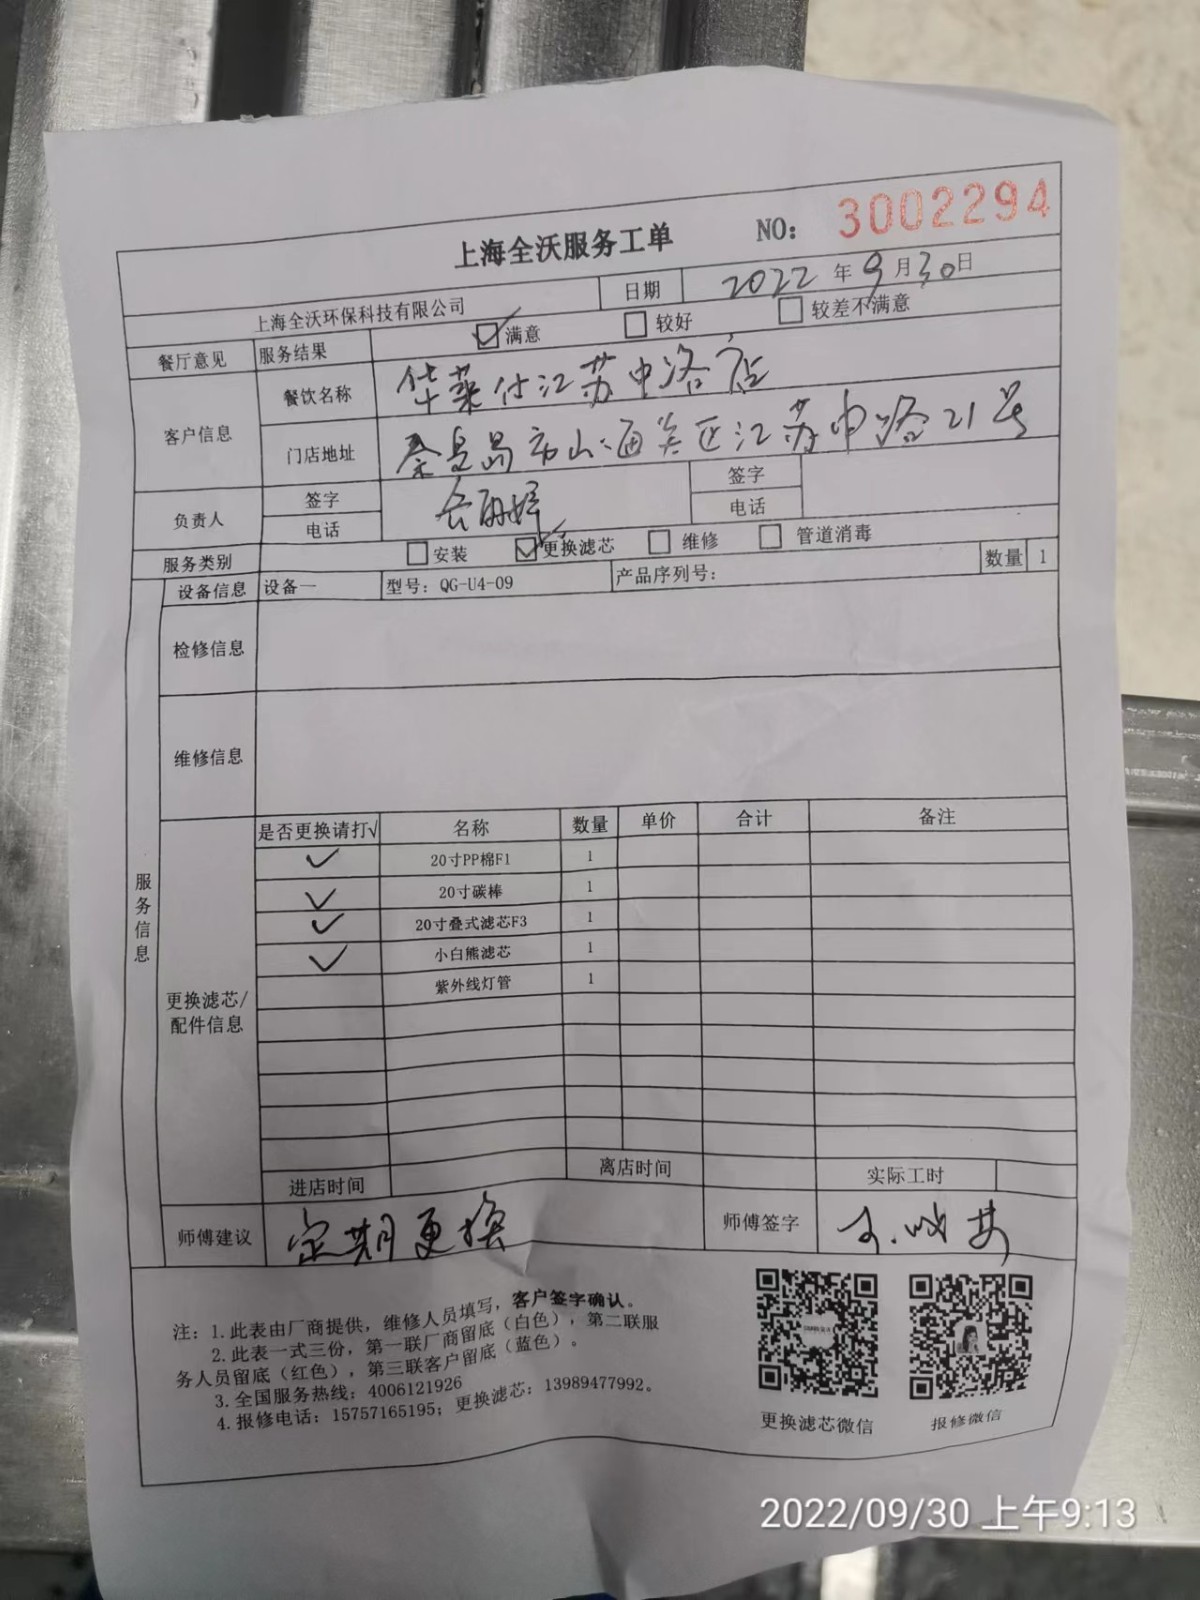 上海全沃服务工单 NO: 3002294
上海全沃环保科技有限公司 日期 2022年9月30日
餐厅意见 服务结果 满意 较好 较差不满意
客户信息 餐饮名称 华莱仕江苏中洛店
门店地址 秦皇岛市山海关区江苏中路21号
负责人 签字 签字
电话 电话
服务类别 安装 更换滤芯 维修 管道消毒
服务信息
设备信息 设备一 型号: QG-U4-09 产品序列号: 数量 1
检修信息
维修信息
更换滤芯/配件信息
是否更换请打√ 名称 数量 单价 合计 备注
✓ 20寸PP棉F1 1
✓ 20寸碳棒 1
✓ 20寸叠式滤芯F3 1
✓ 小白熊滤芯 1
紫外线灯管 1
进店时间 离店时间 实际工时
师傅建议 定期更换 师傅签字
注: 1.此表由厂商提供，维修人员填写，客户签字确认。
2.此表一式三份，第一联厂商留底（白色），第二联服
务人员留底（红色），第三联客户留底（蓝色）。
3.全国服务热线: 4006121926
4.报修电话: 15757165195; 更换滤芯: 13989477992。
更换滤芯微信 报修微信
2022/09/30 上午9:13